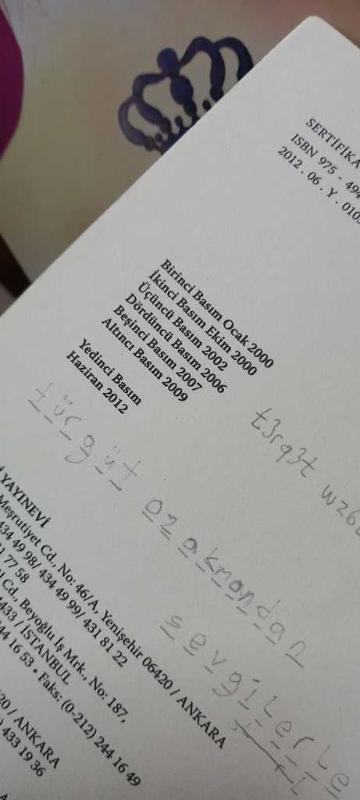 SERTİFİKA
ISBN 975 - 494
2012 . 06 . Y . 0105
Birinci Basım Ocak 2000
İkinci Basım Ekim 2000
Üçüncü Basım 2002
Dördüncü Basım 2006
Beşinci Basım 2007
Altıncı Basım 2009
Yedinci Basım
Haziran 2012
t3rq3t
türgüt
özakmandan
sevgilerle
YAYINEVİ
Meşrutiyet Cd., No: 46/A, Yenişehir 06420 / ANKARA
434 49 98/ 434 49 99/ 431 81 22
77 58
Cd., Beyoğlu İş Mrk., No: 187,
433 / İSTANBUL
244 16 53 • Faks: (0-212) 244 16 49
20 / ANKARA
) 433 19 36